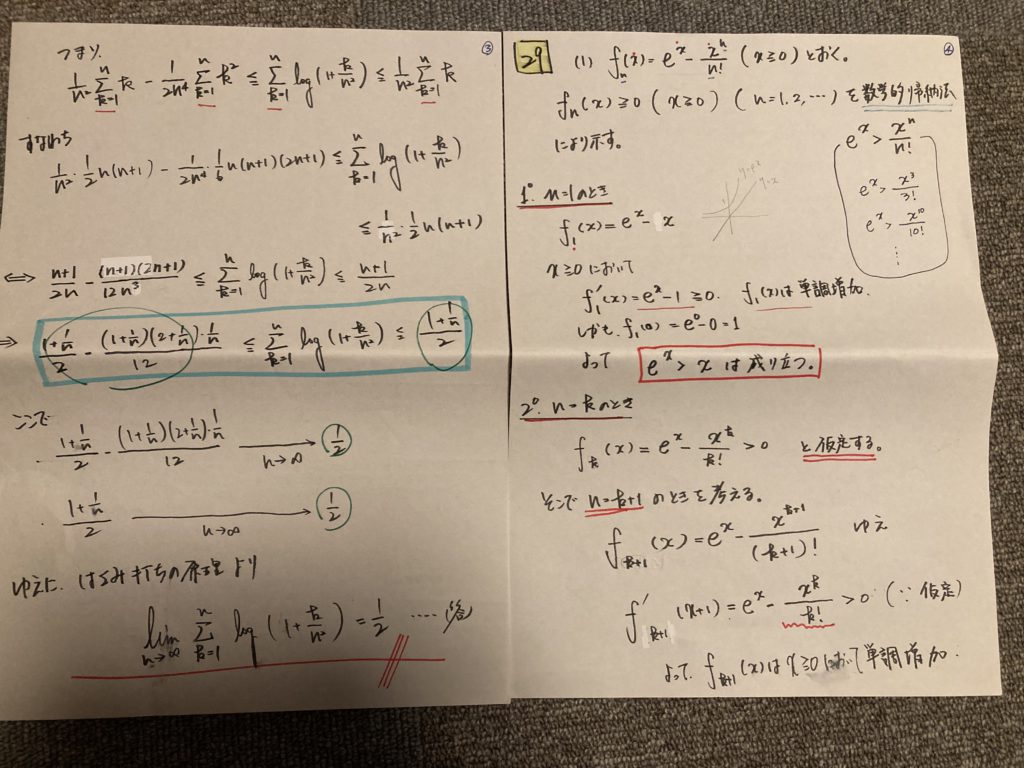 ③
つまり、
1/n² Σ_{k=1}^{n} k − 1/2n⁴ Σ_{k=1}^{n} k² ≦ Σ_{k=1}^{n} log(1+k/n²) ≦ 1/n² Σ_{k=1}^{n} k
すなわち
1/n²・1/2 n(n+1) − 1/2n⁴・1/6 n(n+1)(2n+1) ≦ Σ_{k=1}^{n} log(1+k/n²)
≦ 1/n²・1/2 n(n+1)
⇔ (n+1)/2n − (n+1)(2n+1)/12n³ ≦ Σ_{k=1}^{n} log(1+k/n²) ≦ (n+1)/2n
⇒ (1+1/n)/2 − (1+1/n)(2+1/n)・1/n /12 ≦ Σ_{k=1}^{n} log(1+k/n²) ≦ (1+1/n)/2
ここで
・ (1+1/n)/2 − (1+1/n)(2+1/n)・1/n /12 → (n→∞) 1/2
・ (1+1/n)/2 → (n→∞) 1/2
ゆえに、はさみ打ちの原理より
lim_{n→∞} Σ_{k=1}^{n} log(1+k/n²) = 1/2 ‥‥(答)
④
29 (1) f_n(x) = e^x − x^n/n! (x≧0) とおく。
f_n(x)≧0 (x≧0) (n=1,2,‥‥) を数学的帰納法
により示す。
e^x > x^n/n!
e^x > x³/3!
e^x > x^10/10!
⋮
1° n=1のとき
y=e^x
y=x
f_1(x) = e^x − x
x≧0 において
f_1'(x) = e^x − 1 ≧ 0. f_1(x)は単調増加.
しかも f_1(0) = e^0 − 0 = 1
よって e^x > x は成り立つ。
2° n=kのとき
f_k(x) = e^x − x^k/k! > 0 と仮定する。
そこで n=k+1 のときを考える。
f_{k+1}(x) = e^x − x^{k+1}/(k+1)! ゆえ
f'_{k+1}(x+1) = e^x − x^k/k! > 0 (∵ 仮定)
よって f_{k+1}(x)は x≧0において単調増加.